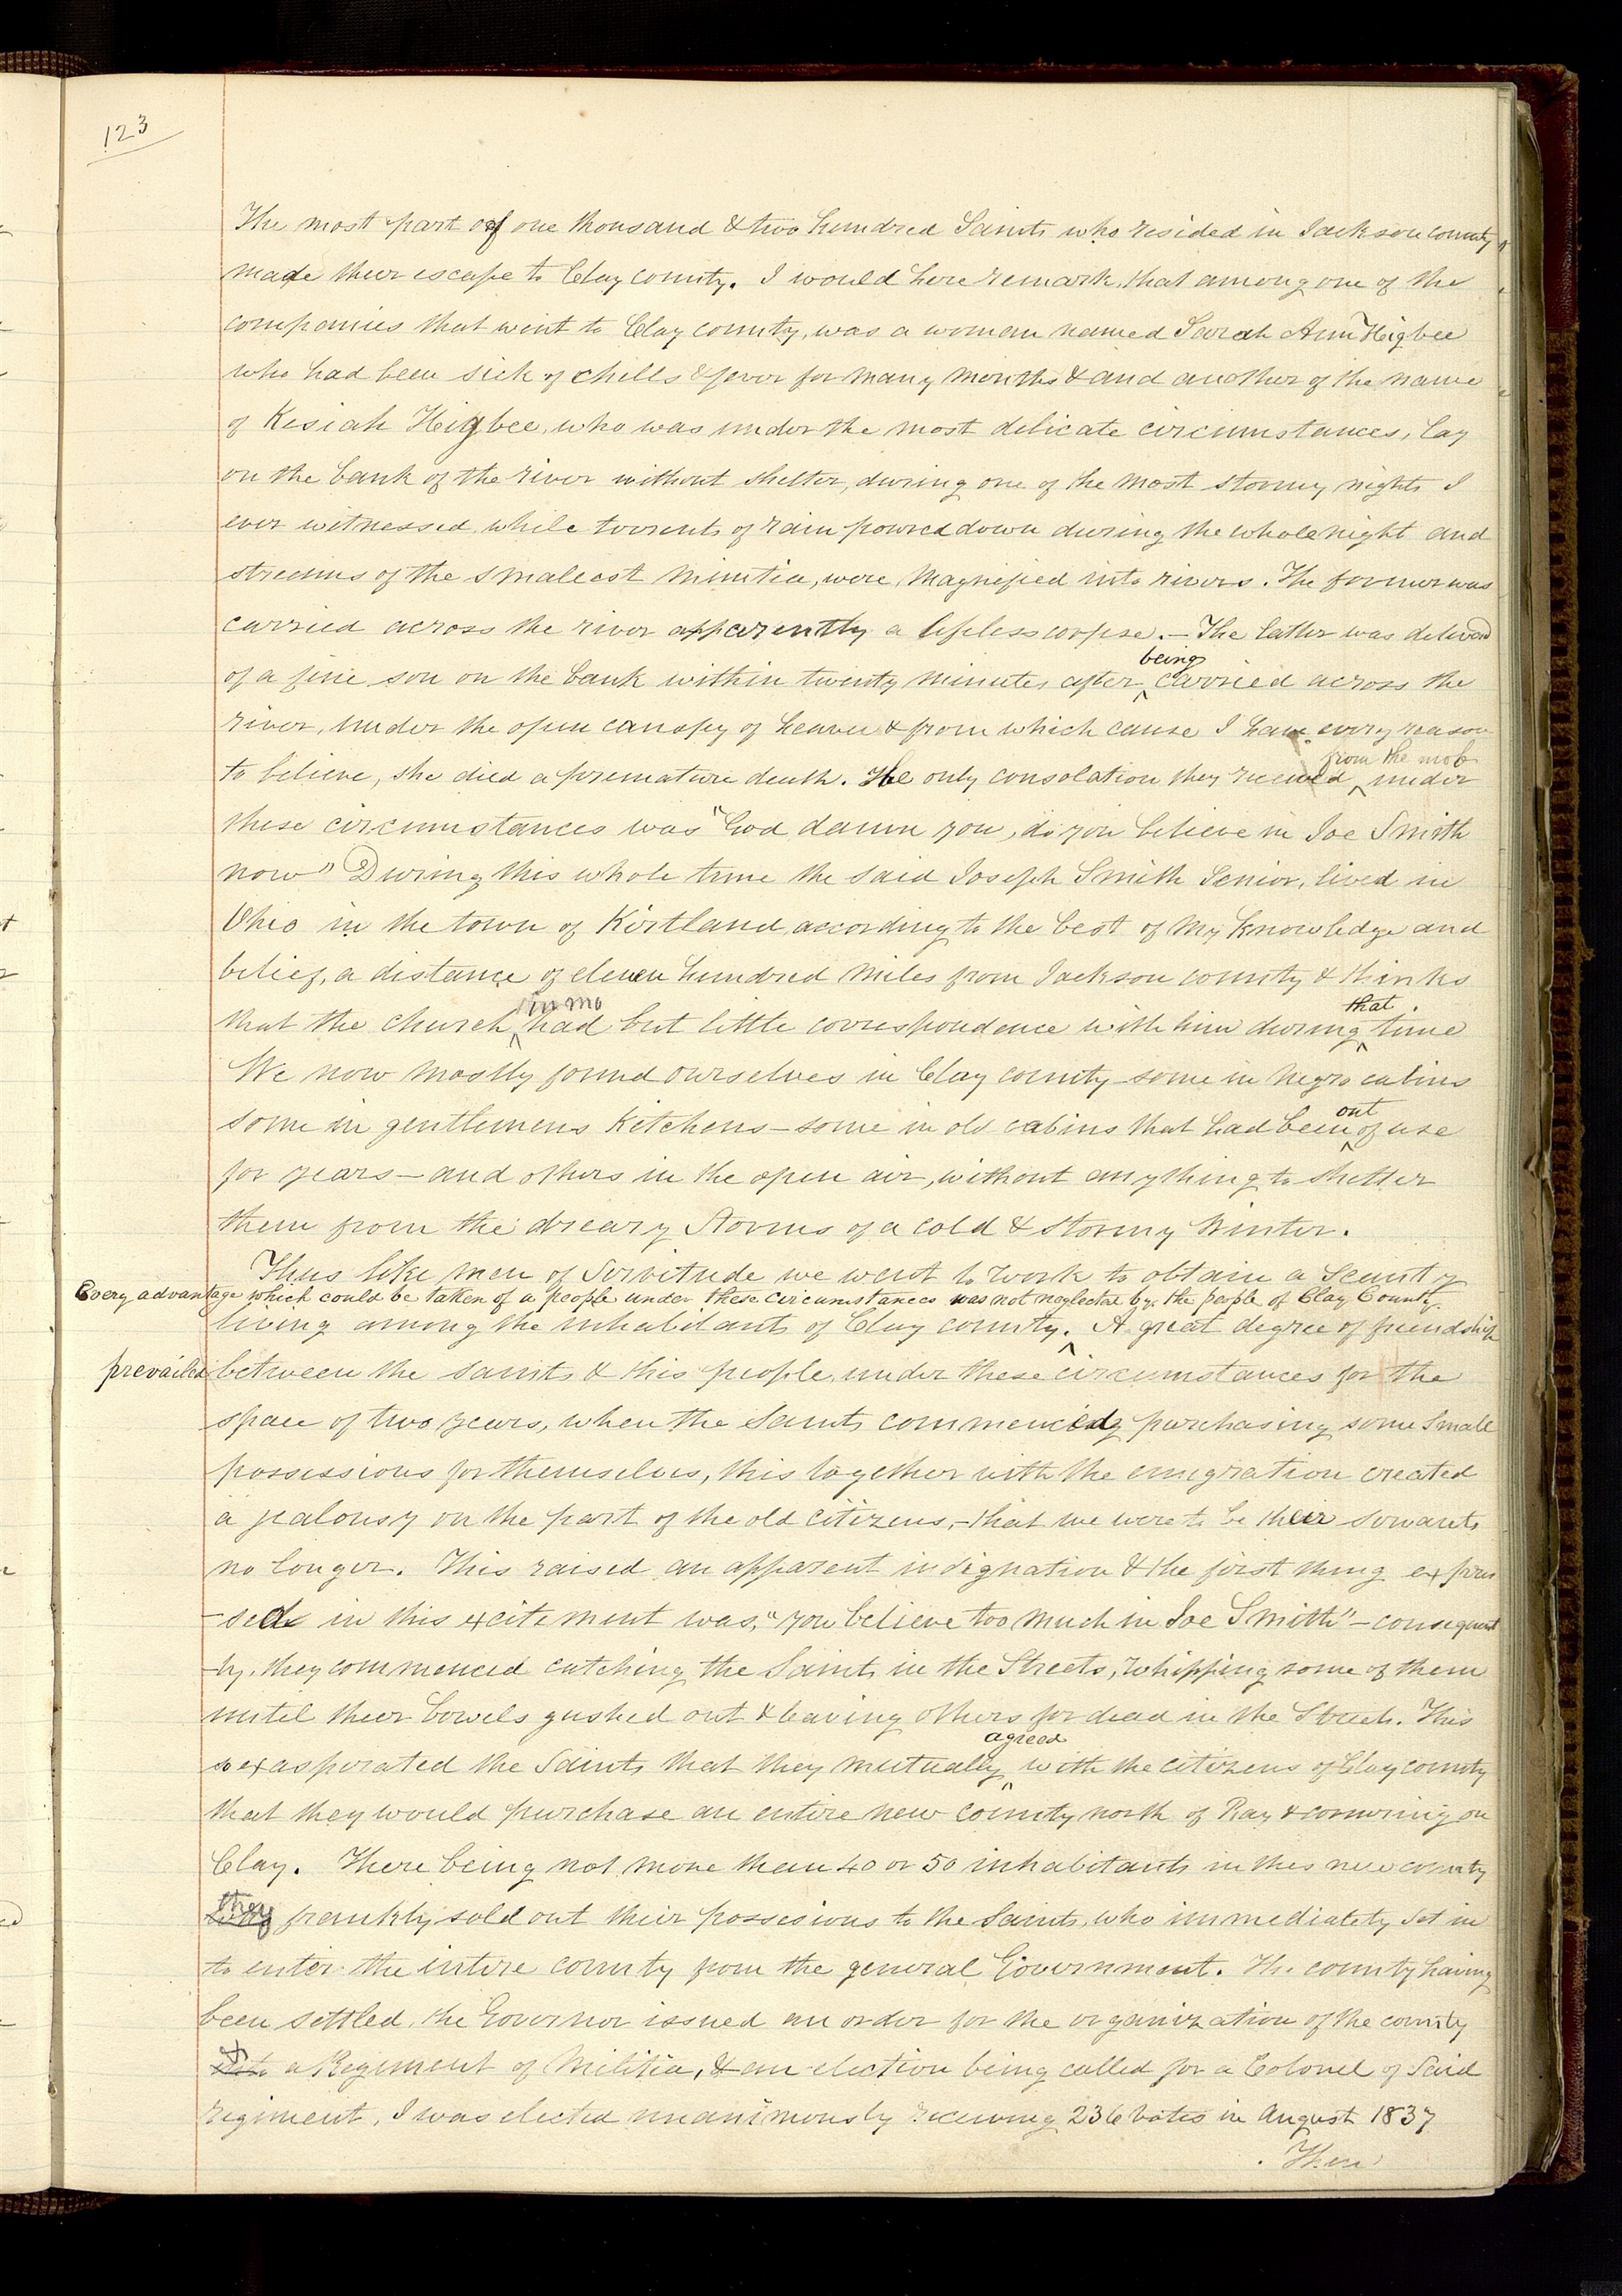 123
The most part of one thousand & two hundred Saints who resided in Jackson county
made their escape to Clay county. I would here remark, that among one of the
companies that went to Clay county, was a woman named Sarah Ann Higbee
who had been sick of chills & fever for many months & and another of the name
of Kesiah Higbee, who was under the most delicate circumstances, lay
on the bank of the river without shelter, during one of the most stormy nights I
ever witnessed, while torrents of rain poured down during the whole night and
streams of the smallest minutia, were magnified into rivers. The former was
carried across the river apparently a lifeless corpse. — The latter was deliverd
being
of a fine son on the bank within twenty minutes after ‸ carried across the
river, under the open canopy of heaven & from which cause I have every reason
from the mob
to believe, she died a premature death. The only consolation they received ‸ under
these circumstances was "God damn you, do you believe in Joe Smith
now" During this whole time the said Joseph Smith Senior, lived in
Ohio in the town of Kirtland according to the best of my knowledge and
belief, a distance of eleven hundred miles from Jackson county & thinks
in Mo that
that the church ‸ had but little correspondence with him during ‸ time
We now mostly found ourselves in Clay county — some in negro cabins
out
some in gentlemens Kitchens — some in old cabins that had been ‸ of use
for years — and others in the open air, without anything to shelter
them from the dreary Storms of a cold & stormy Winter.
Thus like men of Servitude we went to work to obtain a Scanty
Every advantage which could be taken of a people under these circumstances was not neglected by the people of Clay County
living among the inhabitants of Clay county. ‸ A great degree of friendship
prevailed between the saints & this people, under these circumstances for the
space of two years, when the Saints commenced purchasing some small
possessions for themselves, this together with the emigration created
a jealousy on the part of the old citizens, — that we were to be their servants
no longer. This raised an apparent indignation & the first thing expres
-sed in this excitement was, "you believe too much in Joe Smith" — consequent
-ly, they commenced catching the Saints in the Streets, whipping some of them
until their bowels gushed out & leaving others for dead in the Streets. This
agreed
so exasperated the Saints that they mutually ‸ with the citizens of Clay county
that they would purchase an entire new county north of Ray & cornering on
Clay. There being not more than 40 or 50 inhabitants in this new county
they
frankly sold out their possesions to the Saints, who immediately set in
to enter the intire county from the general Government. The county having
been settled, the Governor issued an order for the organization of the county
a Regiment of Militia, & an election being called for a Colonel of Said
regiment, I was elected unanimously receiving 236 votes in August 1837
Then